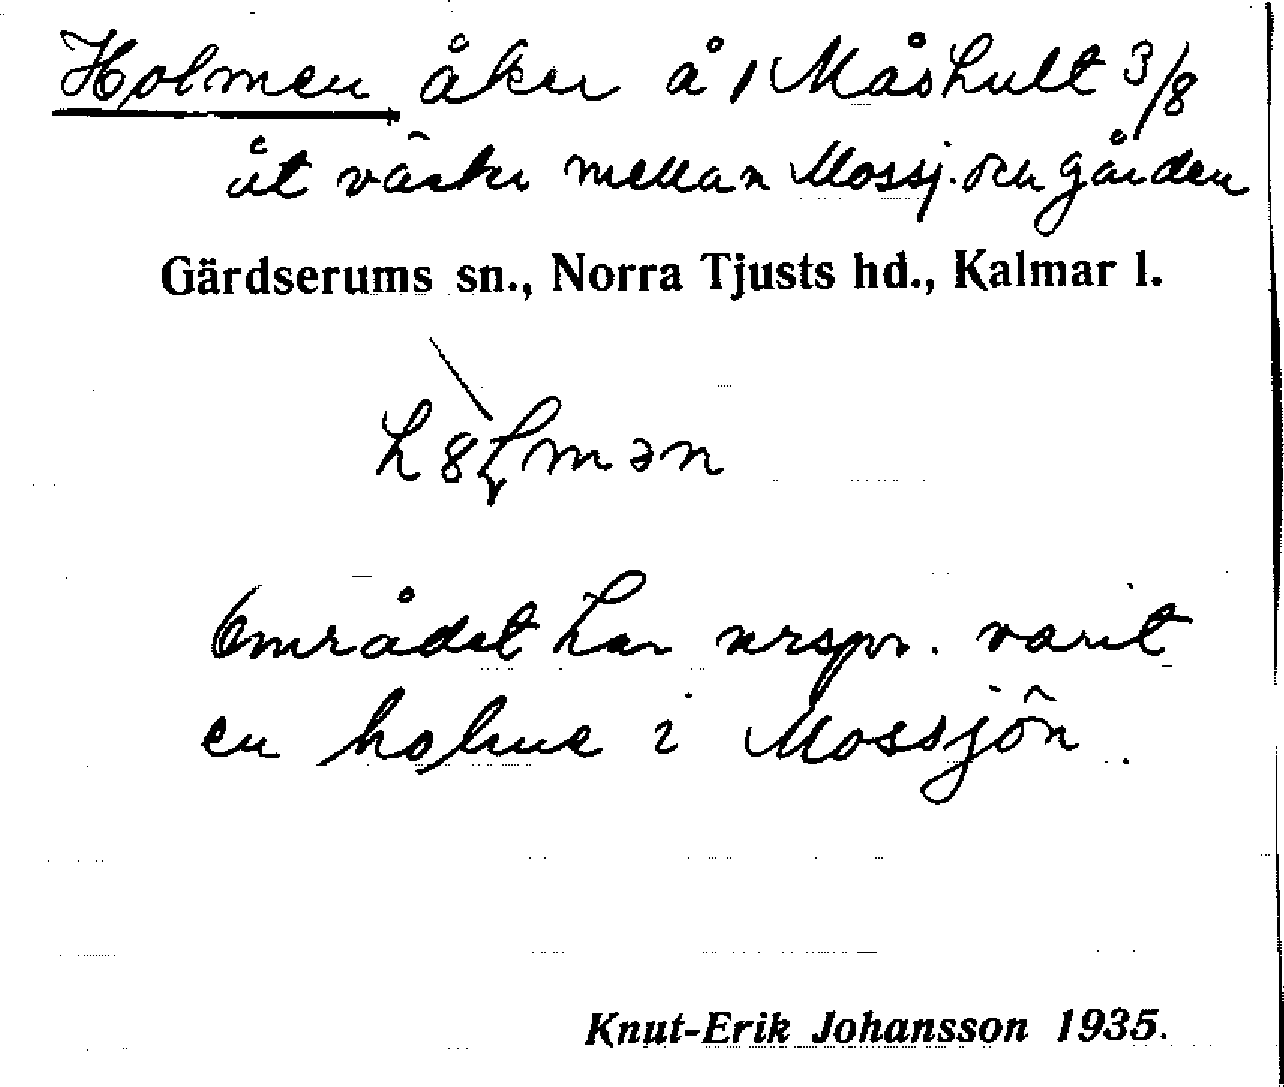 Holmen åker å 1 Måshult 3/8
åt väster mellan Mossj. och gården
Gärdserums sn., Norra Tjusts hd., Kalmar l.
Området har urspr. varit
en holme i Mossjön.
Knut-Erik Johansson 1935.